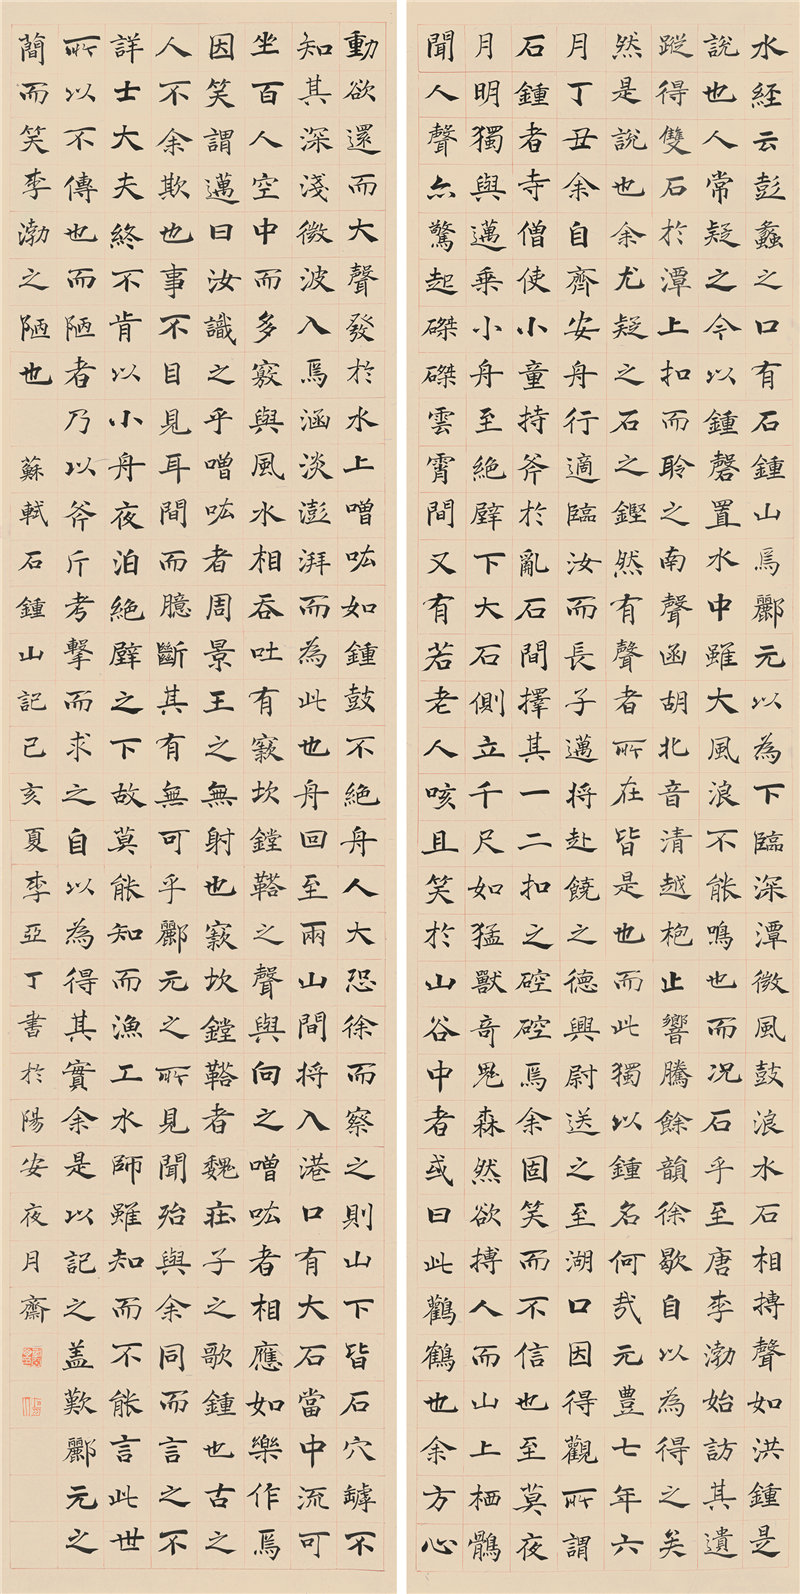 水經云彭蠡之口有石鍾山焉酈元以為下臨深潭微風鼓浪水石相搏聲如洪鍾是
說也人常疑之今以鍾磬置水中雖大風浪不能鳴也而況石乎至唐李渤始訪其遺
蹤得雙石於潭上扣而聆之南聲函胡北音清越枹止響騰餘韻徐歇自以為得之矣
然是說也余尤疑之石之鏗然有聲者所在皆是也而此獨以鍾名何哉元豐七年六
月丁丑余自齊安舟行適臨汝而長子邁將赴饒之德興尉送之至湖口因得觀所謂
石鍾者寺僧使小童持斧於亂石間擇其一二扣之硿硿焉余固笑而不信也至莫夜
月明獨與邁乘小舟至絕壁下大石側立千尺如猛獸奇鬼森然欲搏人而山上栖鶻
聞人聲亦驚起磔磔雲霄間又有若老人咳且笑於山谷中者或曰此鸛鶴也余方心
動欲還而大聲發於水上噌吰如鍾鼓不絕舟人大恐徐而察之則山下皆石穴罅不
知其深淺微波入焉涵淡澎湃而為此也舟回至兩山間將入港口有大石當中流可
坐百人空中而多竅與風水相吞吐有窾坎鏜鞳之聲與向之噌吰者相應如樂作焉
因笑謂邁曰汝識之乎噌吰者周景王之無射也窾坎鏜鞳者魏莊子之歌鍾也古之
人不余欺也事不目見耳聞而臆斷其有無可乎酈元之所見聞殆與余同而言之不
詳士大夫終不肯以小舟夜泊絕壁之下故莫能知而漁工水師雖知而不能言此世
所以不傳也而陋者乃以斧斤考擊而求之自以為得其實余是以記之盖歎酈元之
簡而笑李渤之陋也 蘇軾石鍾山記己亥夏李亞丁書於陽安夜月齋